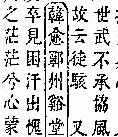 世武不承協風
故云徒駭又
韓愈鄆州谿堂
卒見困汗出愧
之茫茫兮心蒙